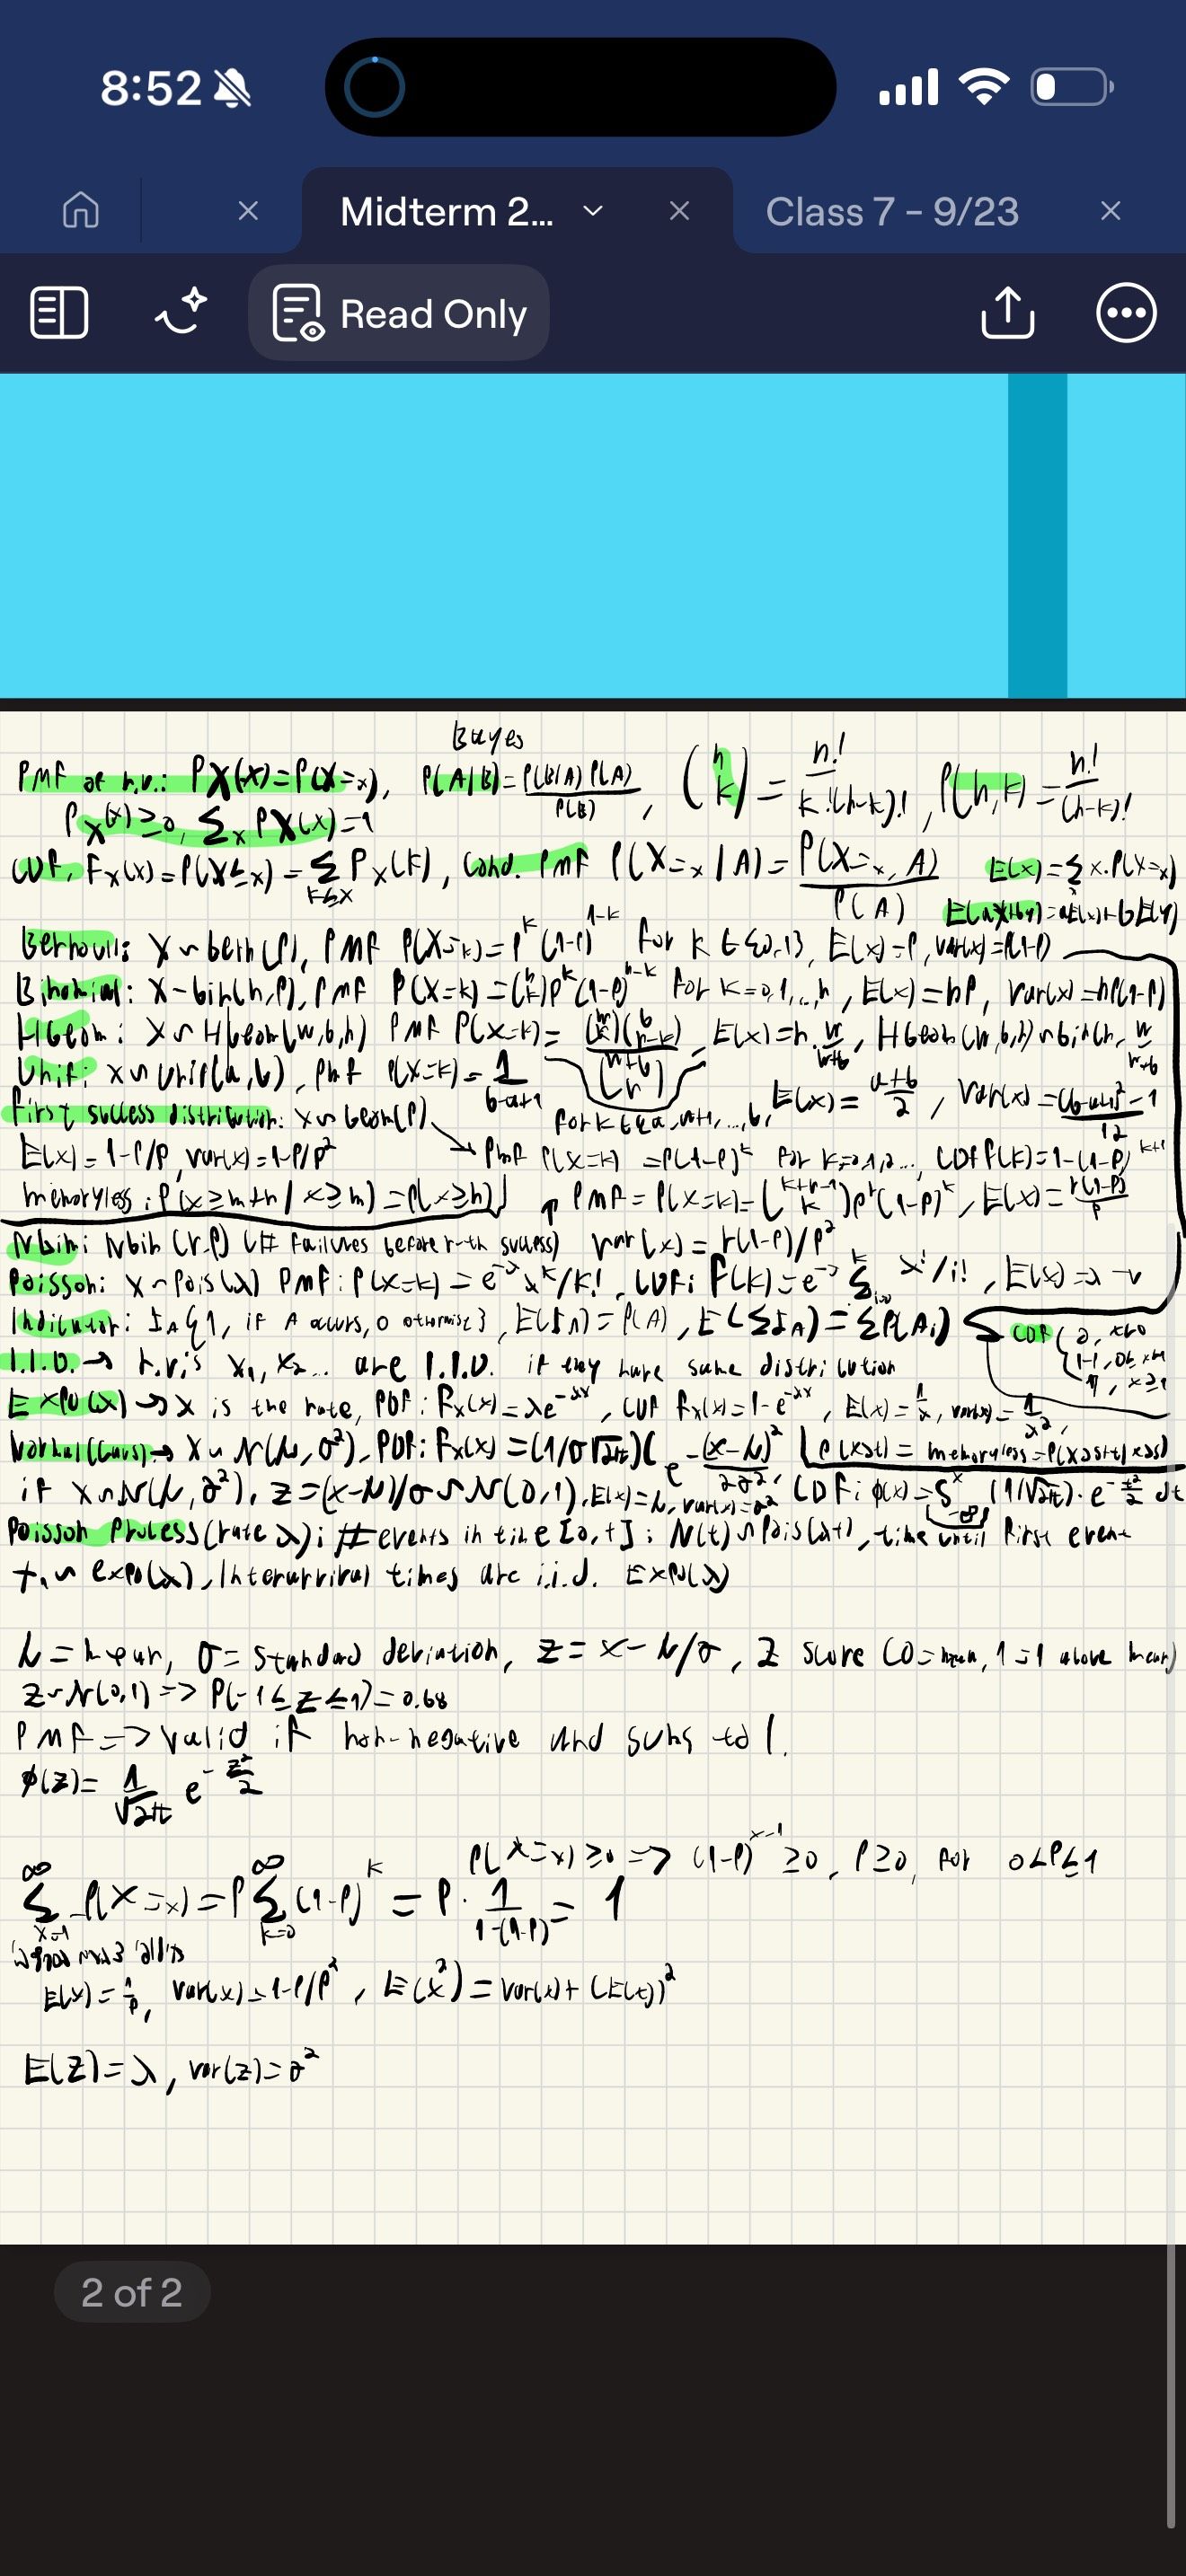 8:52
Midterm 2...
Class 7 - 9/23
Read Only
Bayes
PMF of r.v.: PX(x)=P(X=x), P(A|B)=P(B|A)P(A)/P(B), (n k)=n!/k!(n-k)!, P(n,k)=n!/(n-k)!
PX(x)≥0, Σx PX(x)=1
CDF, FX(x)=P(X≤x)=Σk≤x PX(k), Cond. PMF P(X=x|A)=P(X=x,A)/P(A) E(x)=Σx.P(X=x)
E(ax+by)=aE(x)+bE(y)
Bernoulli: X~bern(p), PMF P(X=k)=p^k(1-p)^1-k for k∈{0,1}, E(x)=p, var(x)=p(1-p)
Binomial: X~bin(n,p), PMF P(X=k)=(n k)p^k(1-p)^n-k for k=0,1,...,n, E(x)=np, var(x)=np(1-p)
HGeom: X~HGeom(w,b,n) PMF P(X=k)=(w k)(b n-k)/(w+b n), E(x)=n.w/w+b, HGeom(w,b,n)~bin(n, w/w+b
Unif: X~Unif(a,b), PMF P(X=k)=1/b-a+1 for k∈{a,a+1,...,b}, E(x)=a+b/2, var(x)=(b-a+1)²-1/12
First success distribution: X~Geom(p)
E(x)=1-p/p, var(x)=1-p/p² PMF P(X=k)=p(1-p)^k for k=0,1,2..., CDF F(k)=1-(1-p)^k+1
memoryless: P(x≥m+n|x≥m)=P(x≥n) PMF=P(X=k)=(k+r-1 k)p^r(1-p)^k, E(x)=r(1-p)/p
NBin: NBin(r,p) (# failures before r-th success) var(x)=r(1-p)/p²
Poisson: X~Pois(λ) PMF: P(X=k)=e^-λ λ^k/k!, CDF: F(k)=e^-λ Σ^k i=0 λ^i/i!, E(x)=λ=v
Indicator: IA{1, if A occurs, 0 otherwise}, E(IA)=P(A), E(ΣIA)=ΣP(Ai) CDF {0, x<0
I.I.D. → r.v.'s X1, X2... are I.I.D. if they have same distribution 1-p, 0≤x<1
1, x≥1
Expo(λ) → λ is the rate, PDF: FX(x)=λe^-λx, CDF FX(x)=1-e^-λx, E(x)=1/λ, var(x)=1/λ²,
Normal(Gauss) → X~N(μ,σ²), PDF: FX(x)=(1/σ√2π)(e^-(x-μ)²/2σ², P(x≥t)=memoryless=P(x≥s+t|x≥s)
if X~N(μ,σ²), z=(x-μ)/σ~N(0,1), E(x)=μ, var(x)=σ² CDF: φ(x)=∫^x -∞ (1/√2π).e^-t²/2 dt
Poisson Process (rate λ): # events in time [0,t]: N(t)~Pois(λt), time until first event
T1~expo(λ), Interarrival times are i.i.d. Expo(λ)
μ=mean, σ=standard deviation, z=x-μ/σ, Z score (0=mean, 1=1 above mean)
Z~N(0,1)=>P(-1≤z≤1)=0.68
PMF=>valid if non-negative and sums to 1.
φ(z)=1/√2π e^-z²/2
P(X=x)≥0=>(1-p)^x-1≥0, p≥0, for 0<p≤1
Σ^∞ x=1 P(X=x)=pΣ^∞ k=0 (1-p)^k=p.1/1-(1-p)=1
E(x)=1/p, var(x)=1-p/p², E(x²)=var(x)+(E(x))²
E(Z)=λ, var(z)=σ²
2 of 2